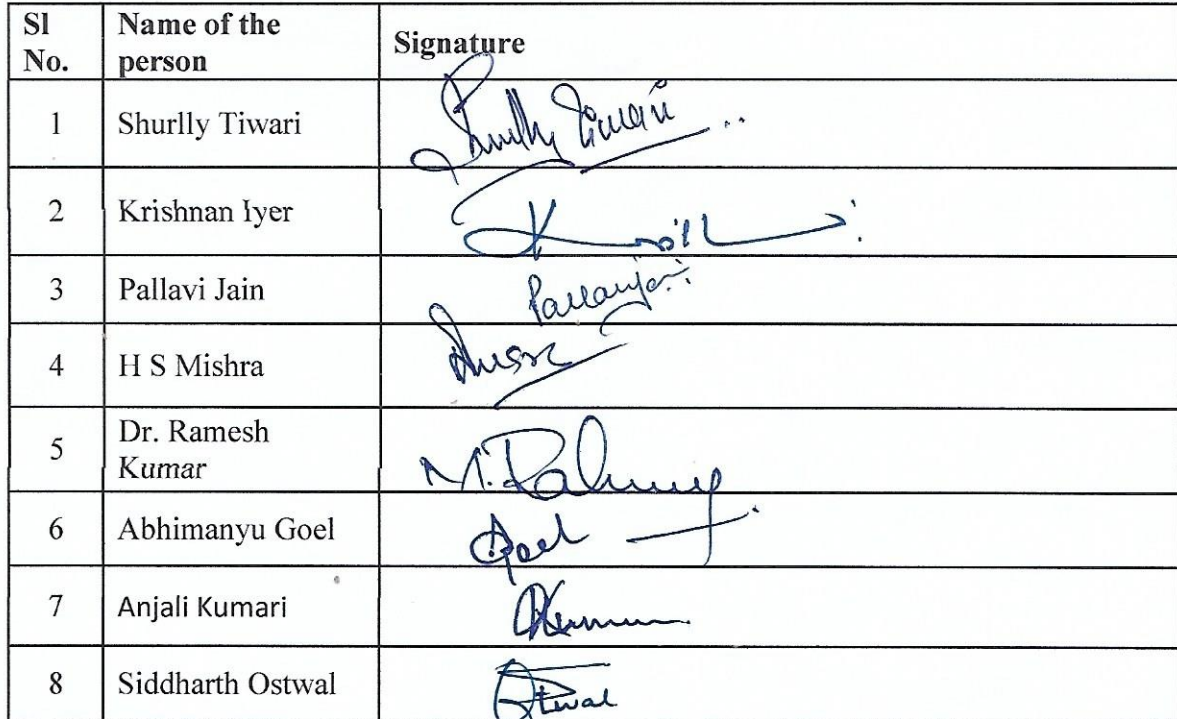 Sl No. Name of the person Signature
1 Shurlly Tiwari Shurlly Tiwari
2 Krishnan Iyer
3 Pallavi Jain
4 H S Mishra
5 Dr. Ramesh Kumar
6 Abhimanyu Goel Goel
7 Anjali Kumari
8 Siddharth Ostwal Ostwal